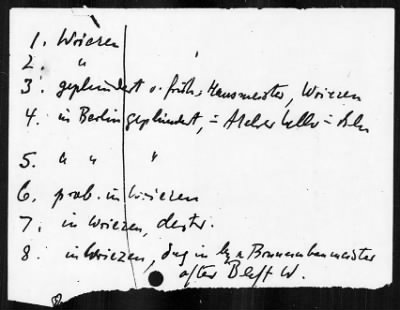 1. Wriezen
2. "
3. geplündert v. früh. Hausmeister, Wriezen
4. in Berlin geplündert, = Atelier
5. " " "
6. prob. in Wriezen
7. in Wriezen, destr.
8. in Wriezen, dug in by a Brunnenbaumeister
after Bl W.